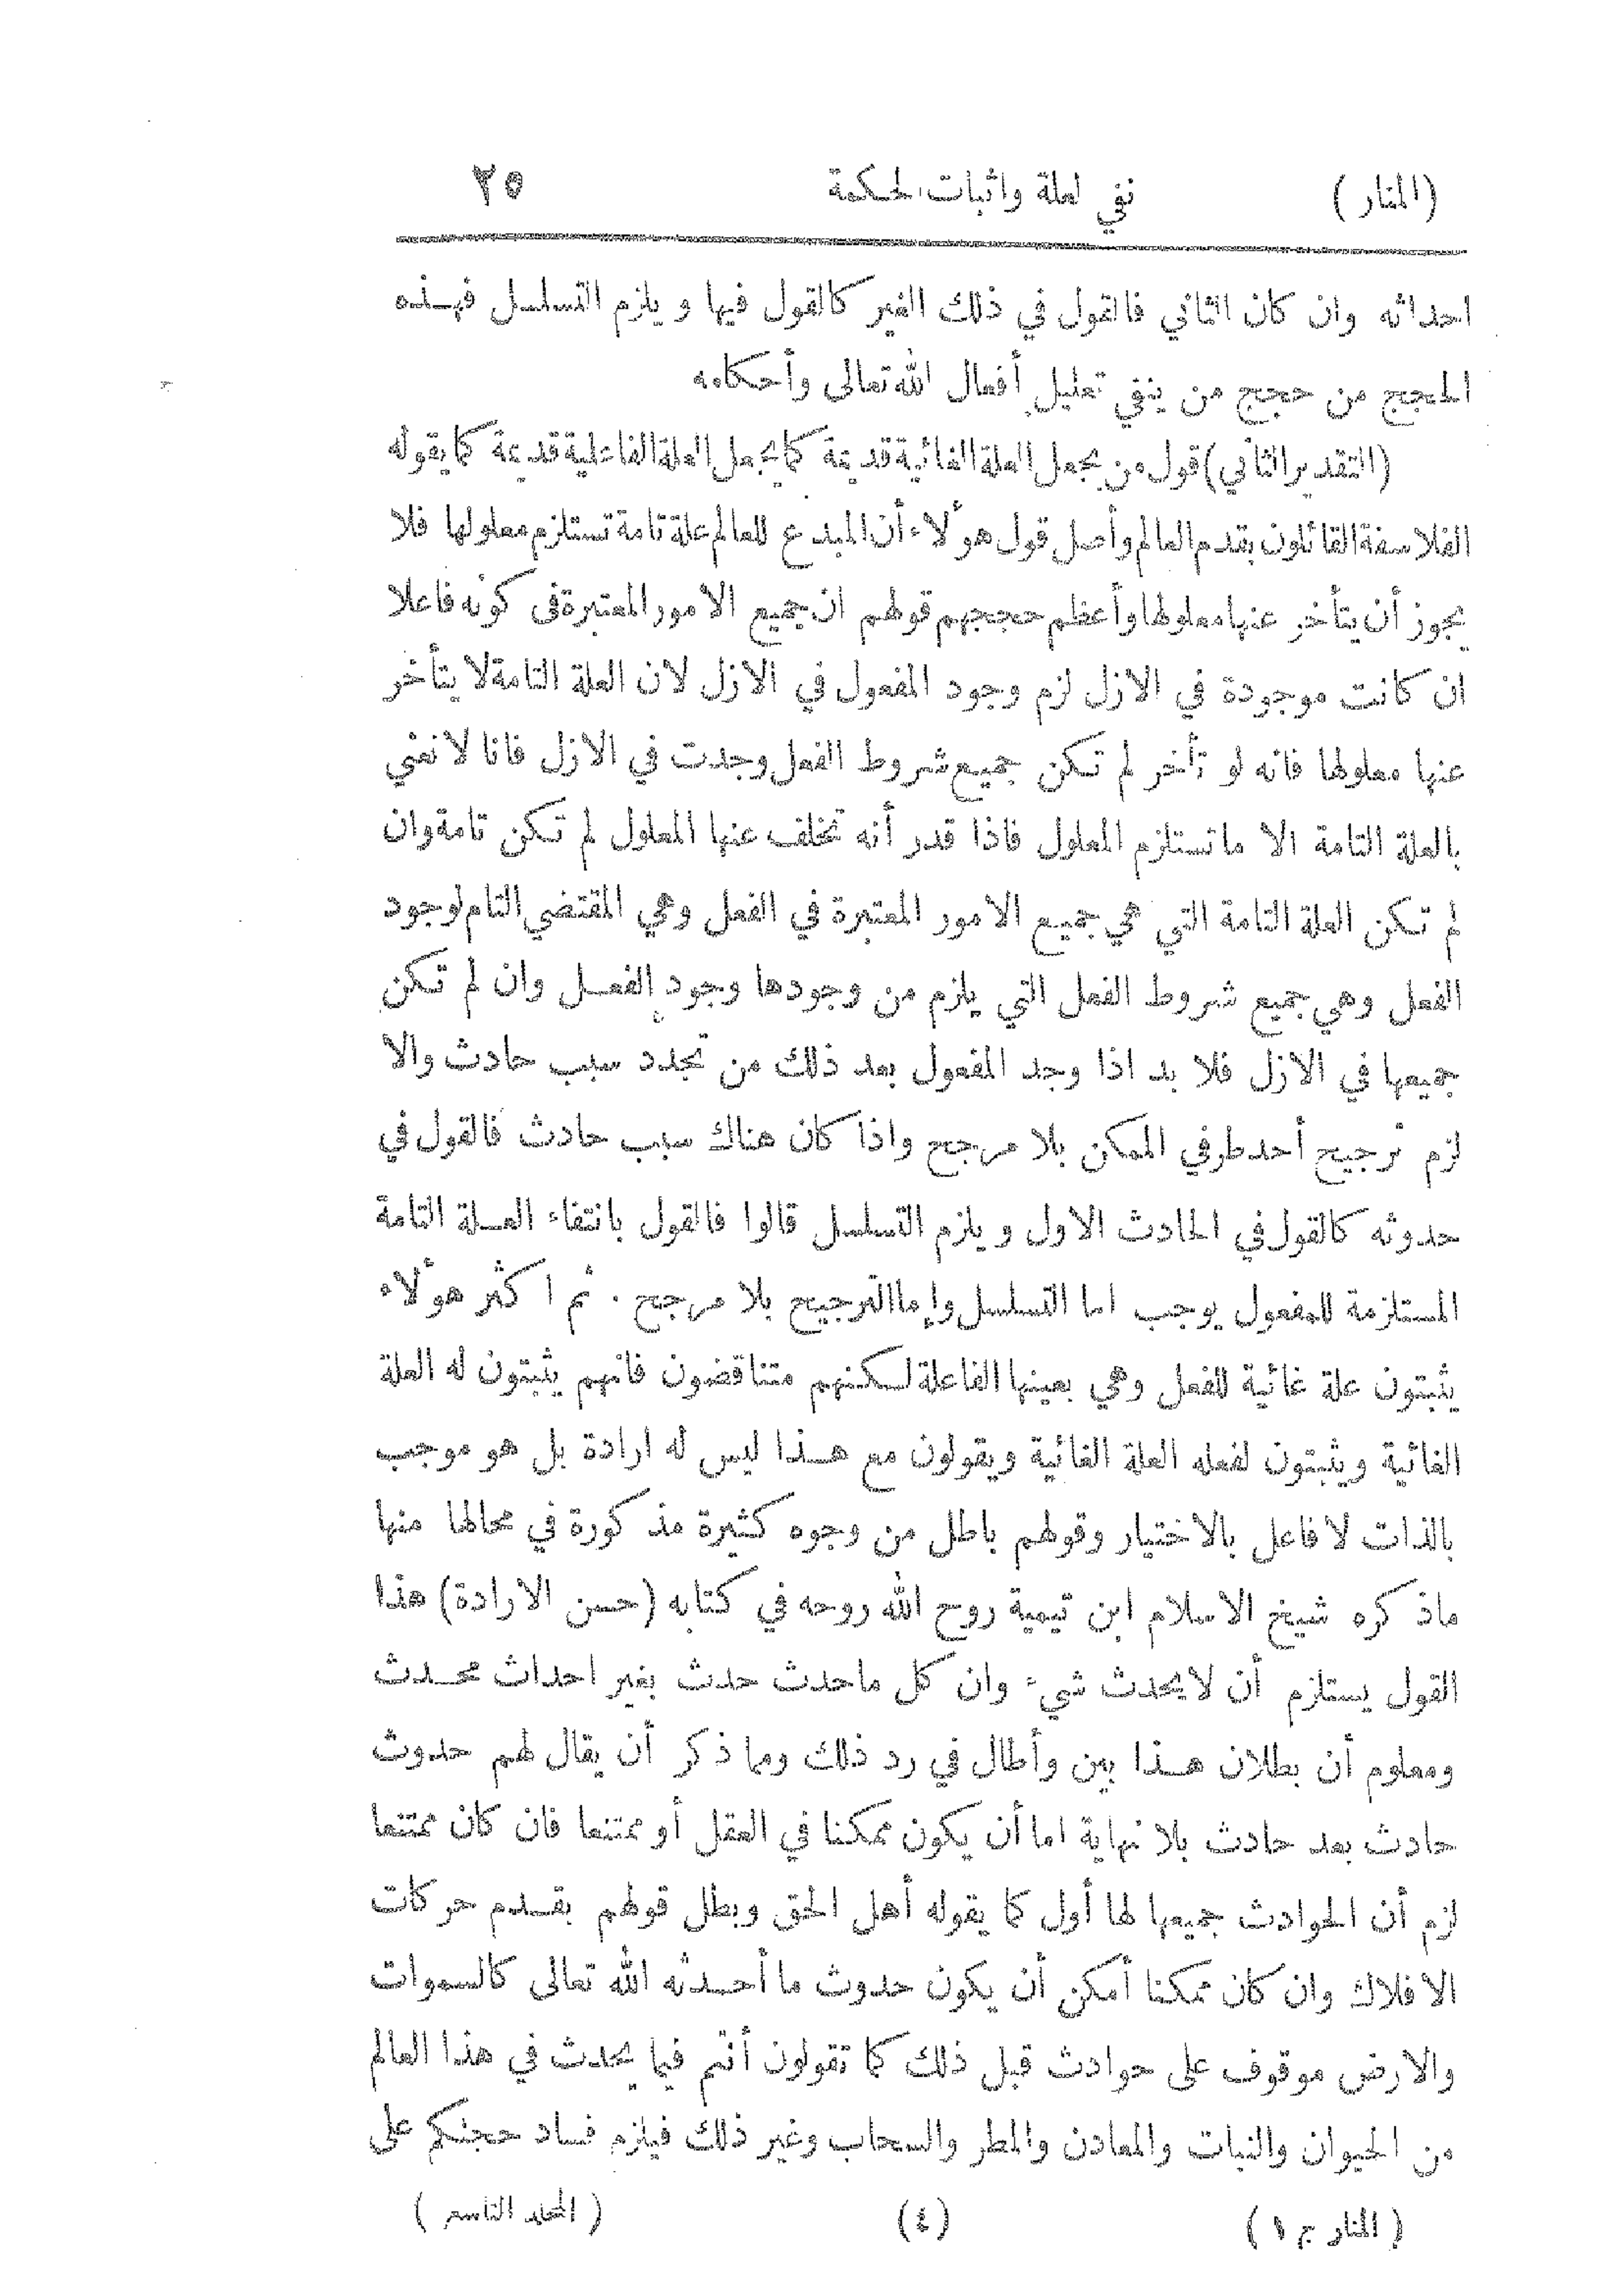 (المنار) نفي العلة واثبات الحكمة ٢٥
احداثه وان كان الثاني فالقول في ذلك الغير كالقول فيها ويلزم التسلسل فهذه
الحجج من حجج من ينفي تعليل أفعال الله تعالى وأحكامه
(التقدير الثاني) قول من يجعل العلة الغائية قديمة كما يجعل العلة الفاعلية قديمة كما يقوله
الفلاسفة القائلون بقدم العالم وأصل قول هؤلاء أن المبدع للعالم علة تامة تستلزم معلولها فلا
يجوز أن يتأخر عنها معلولها وأعظم حججهم قولهم ان جميع الامور المعتبرة فى كونه فاعلا
ان كانت موجودة في الازل لزم وجود المفعول في الازل لان العلة التامة لا يتأخر
عنها معلولها فانه لو تأخر لم تكن جميع شروط الفعل وجدت في الازل فانا لا نعني
بالعلة التامة الا ما تستلزم المعلول فاذا قدر أنه تخلف عنها المعلول لم تكن تامة وان
لم تكن العلة التامة التي هي جميع الامور المعتبرة في الفعل وهي المقتضي التام لوجود
الفعل وهي جميع شروط الفعل التي يلزم من وجودها وجود الفعل وان لم تكن
جميعها في الازل فلا بد اذا وجد المفعول بعد ذلك من تجدد سبب حادث والا
لزم ترجيح أحد طرفي الممكن بلا مرجح واذا كان هناك سبب حادث فالقول في
حدوثه كالقول في الحادث الاول ويلزم التسلسل قالوا فالقول بانتفاء العلة التامة
المستلزمة للمفعول يوجب اما التسلسل وإما الترجيح بلا مرجح . ثم اكثر هؤلاء
يثبتون علة غائية للفعل وهي بعينها الفاعلة لكنهم متناقضون فانهم يثبتون له العلة
الغائية ويثبتون لفعله العلة الغائية ويقولون مع هذا ليس له ارادة بل هو موجب
بالذات لا فاعل بالاختيار وقولهم باطل من وجوه كثيرة مذكورة في محالها منها
ماذكره شيخ الاسلام ابن تيمية روح الله روحه في كتابه (حسن الارادة) هذا
القول يستلزم أن لا يحدث شيء وان كل ماحدث حدث بغير احداث محدث
ومعلوم أن بطلان هذا بين وأطال في رد ذلك ومما ذكر أن يقال لهم حدوث
حادث بعد حادث بلا نهاية اما أن يكون ممكنا في العقل أو ممتنعا فان كان ممتنعا
لزم أن الحوادث جميعها لها أول كما يقوله أهل الحق وبطل قولهم بقدم حركات
الافلاك وان كان ممكنا أمكن أن يكون حدوث ما أحدثه الله تعالى كالسموات
والارض موقوف على حوادث قبل ذلك كما تقولون أنتم فيما يحدث في هذا العالم
من الحيوان والنبات والمعادن والمطر والسحاب وغير ذلك فيلزم فساد حجتكم على
(المنار ج ١) (٤) (المجلد التاسع)